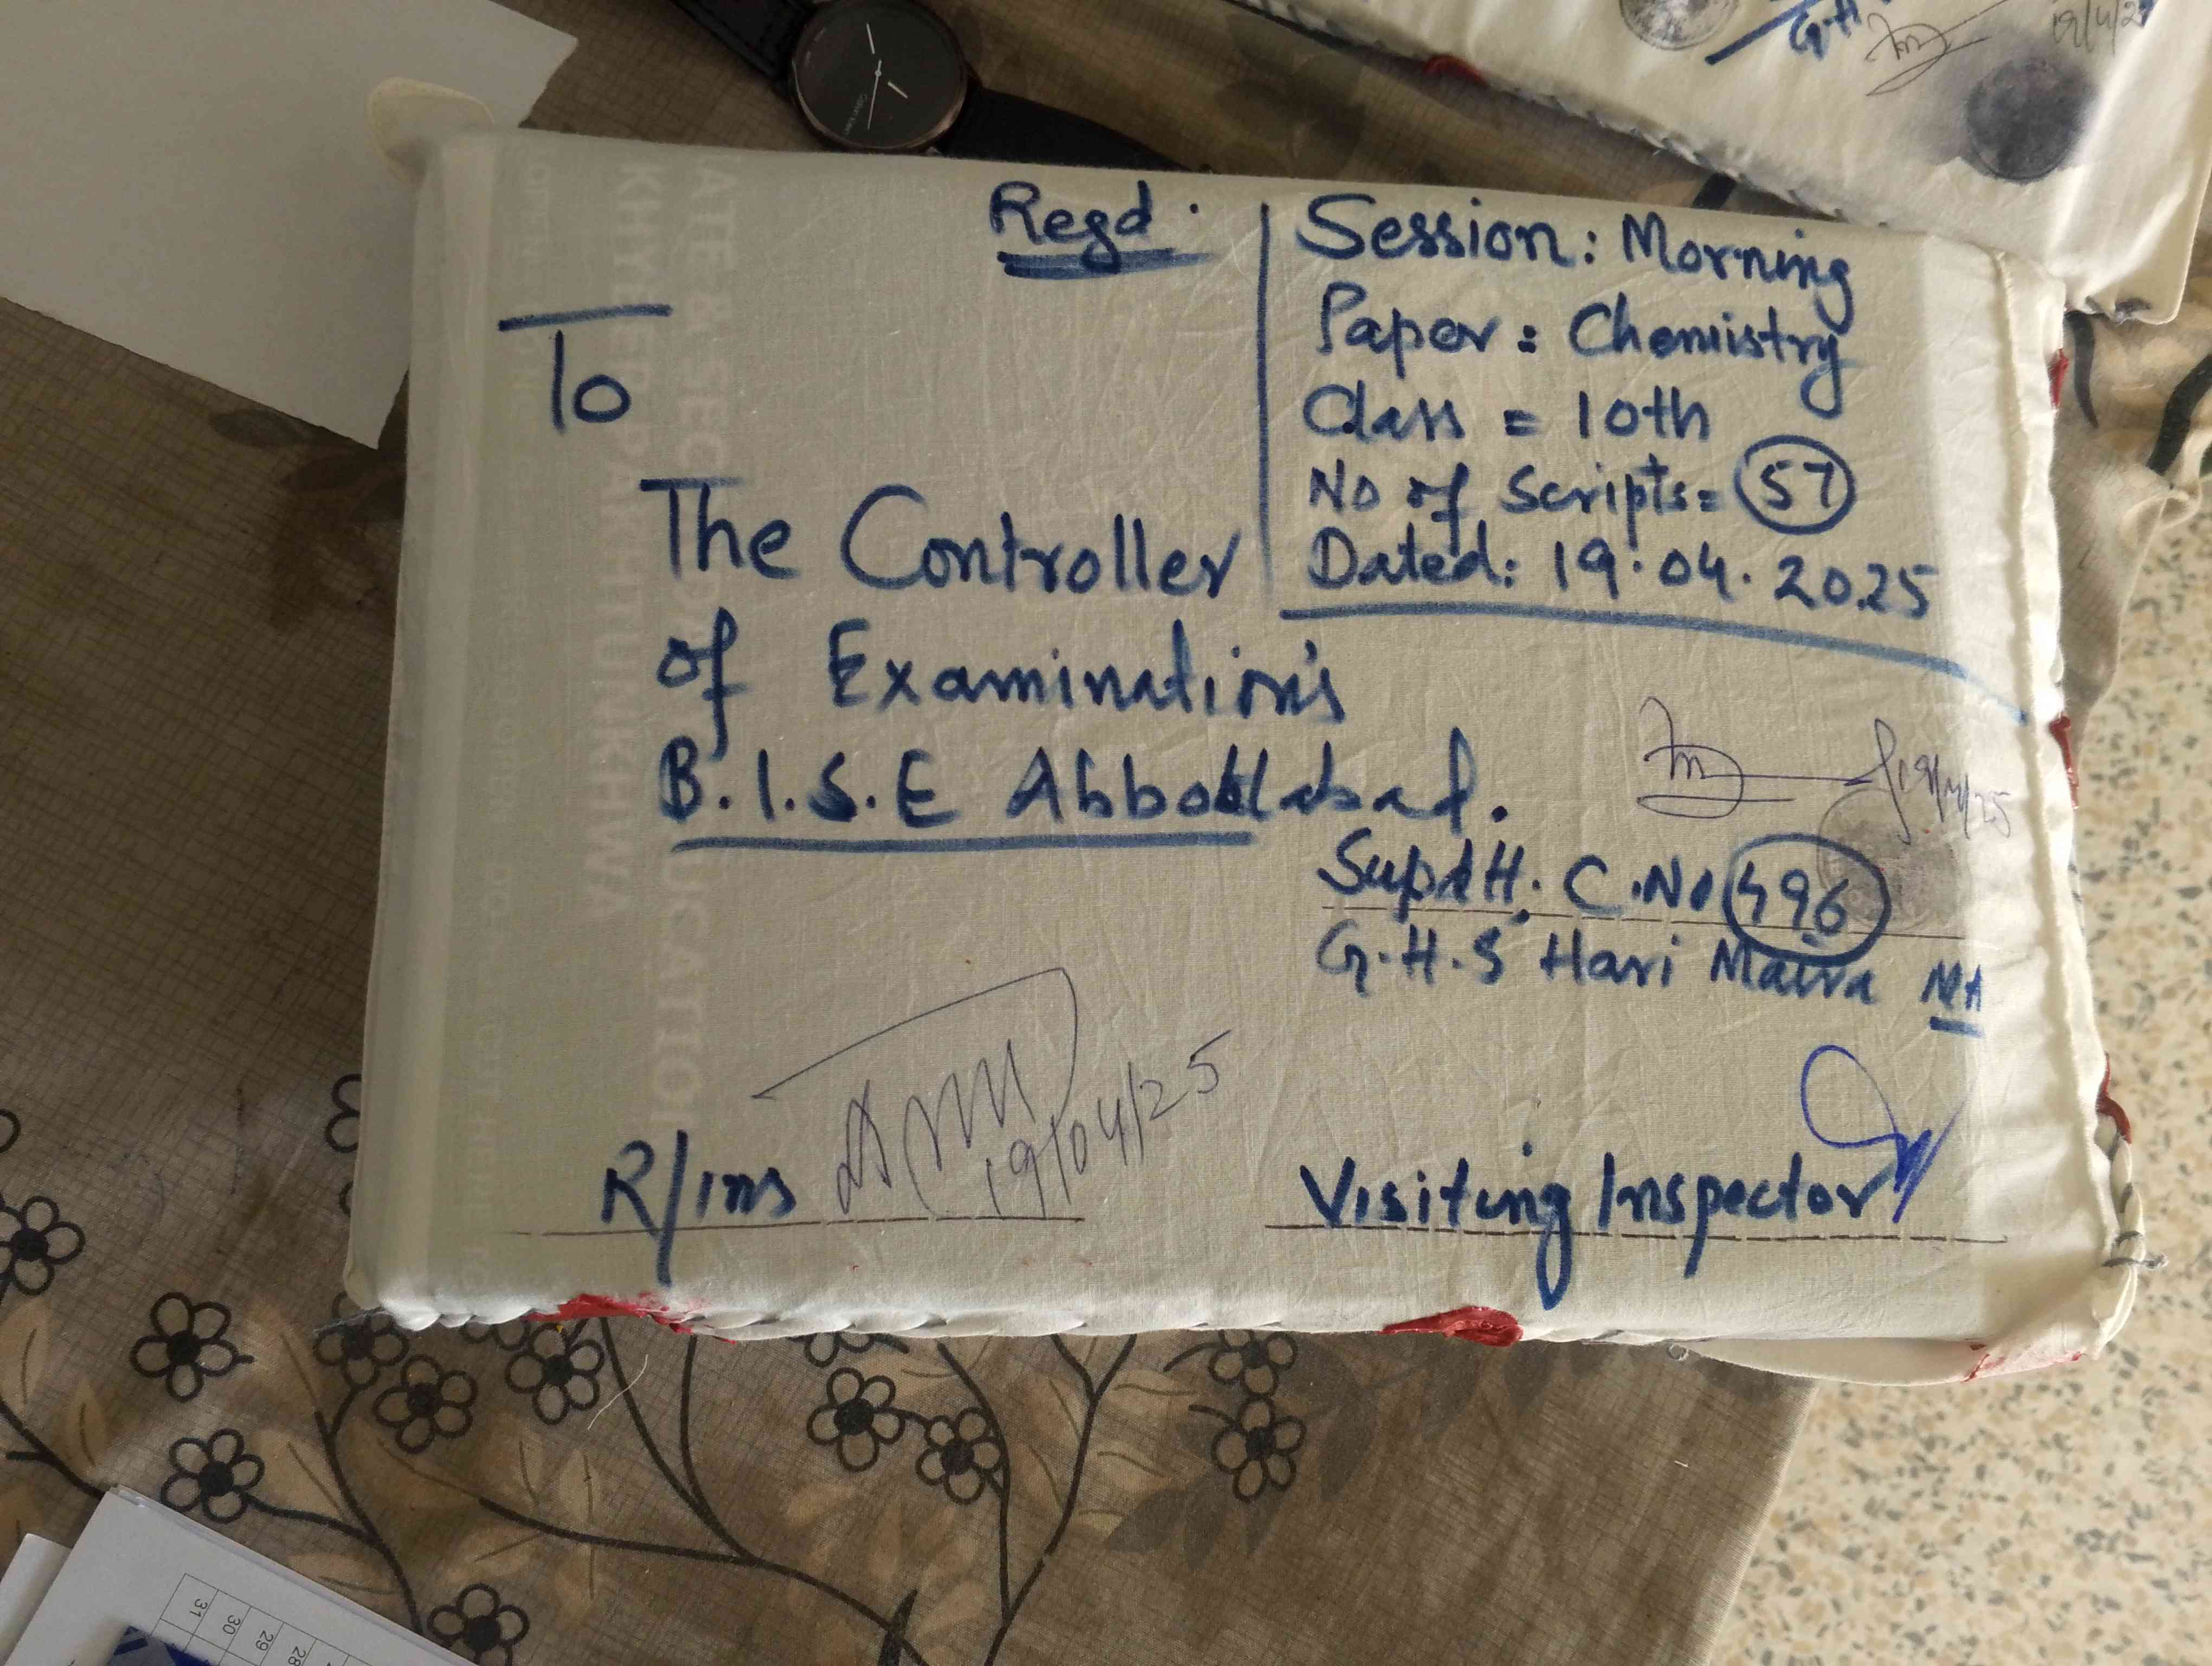 Regd.
Session: Morning
Paper: Chemistry
Class = 10th
No of Scripts= 57
Dated: 19.04.2025
To
The Controller
of Examination's
B.I.S.E Abbottabad.
Supdtt. C.No 496
G.H.S Hari Maira
R/ins
19/04/25
Visiting Inspector
KHYBER PAKHTUNKHWA
G.H
31
30
29
28